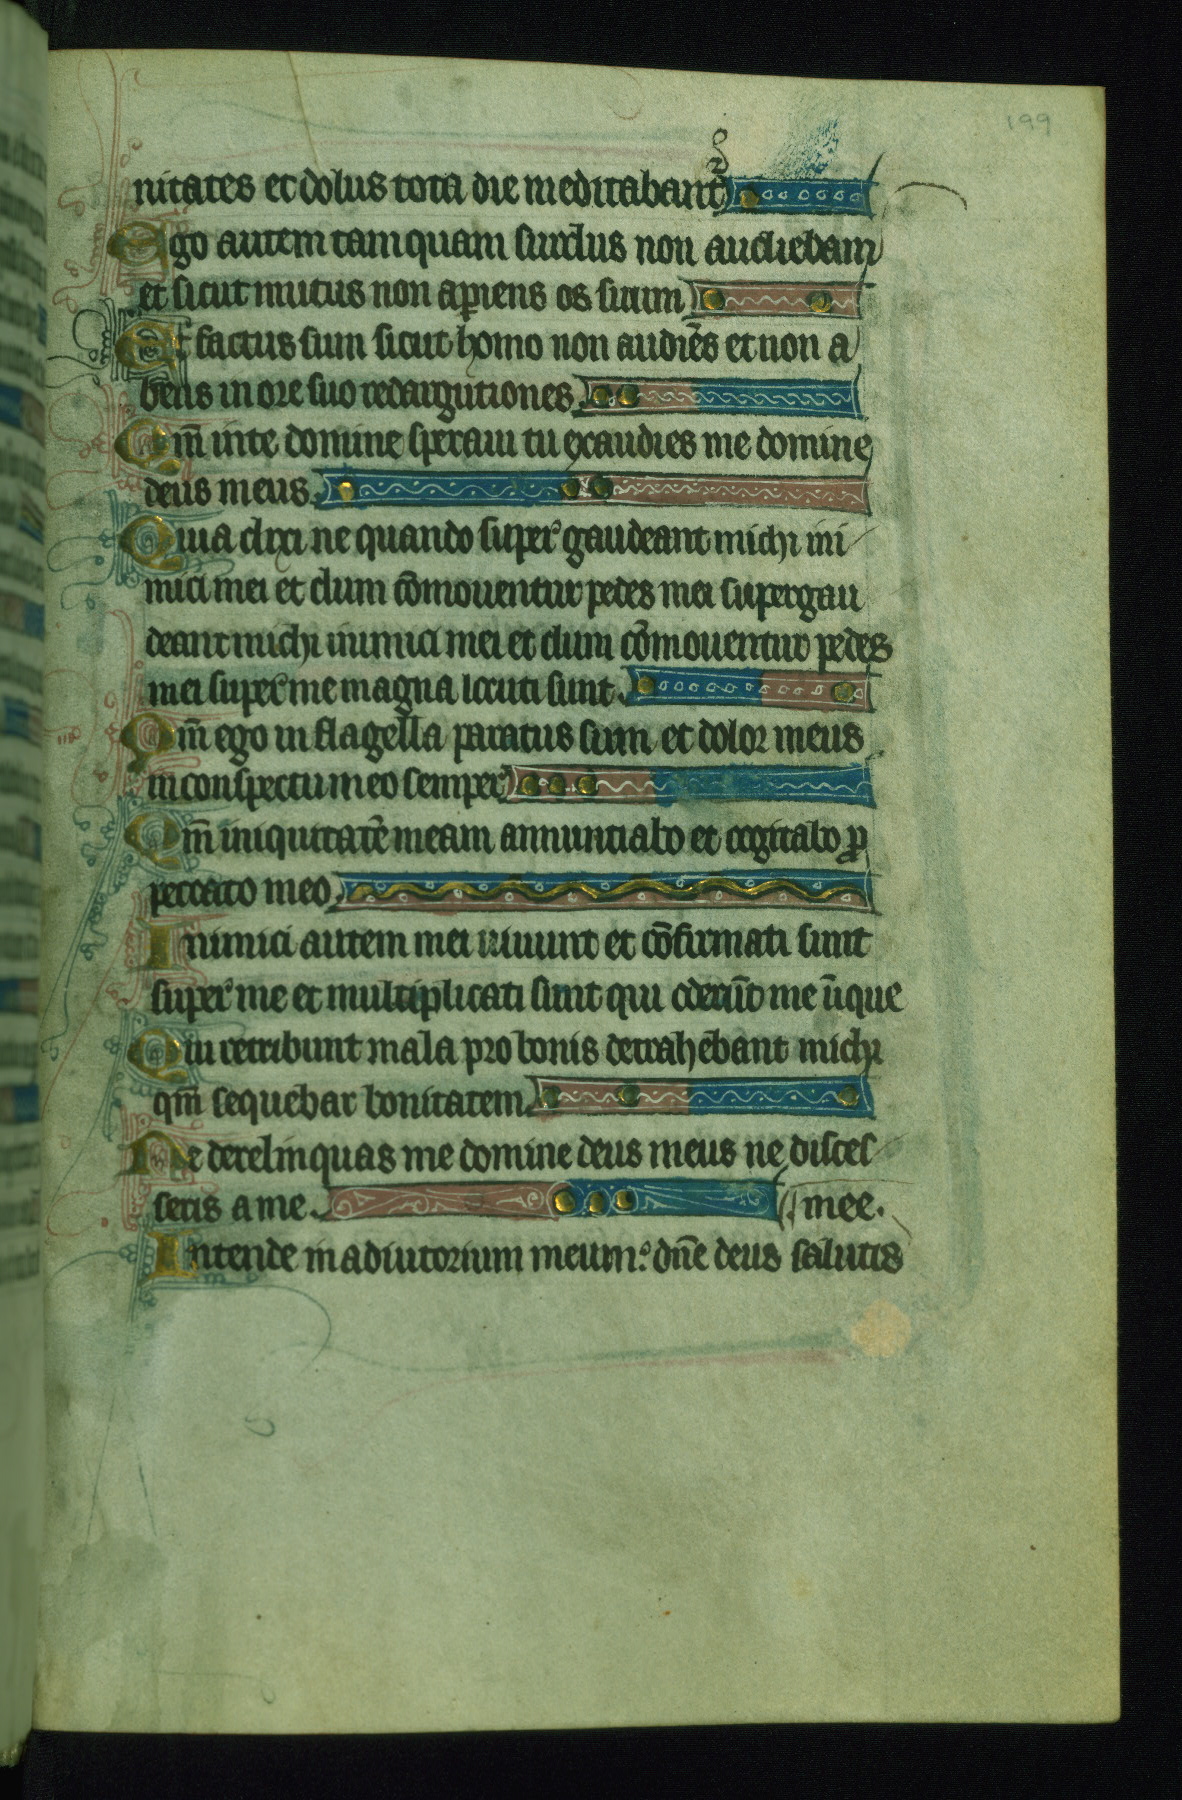 199
nitates et dolus tota die meditabant᷑
Ego autem tamquam surdus non audiebam
et sicut mutus non aꝑiens os suum
Et factus sum sicut homo non audiēs et non a
bens in ore suo redargutiones.
Qm̄ in te domine speraui tu exaudies me domine
deus meus.
Quia dixi ne quando super gaudeant michi ini
mici mei et dum cōmouentur pedes mei supergau
deant michi inimici mei et dum cōmouentur pedes
mei super me magna locuti sunt.
Qm̄ ego in flagella paratus sum et dolor meus
in conspectu meo semper
Qm̄ iniquitatē meam annuntiabo et cogitabo ꝓ
peccato meo.
Inimici autem mei uiuunt et cōfirmati sunt
super me et multiplicati sunt qui oderūt me īique
Qui retribunt mala pro bonis detrahebant michi
qm̄ sequebar bonitatem.
Ne derelinquas me domine deus meus ne disces
seris a me. mee.
Intende in adiutorium meum: dn̄e deus salutis